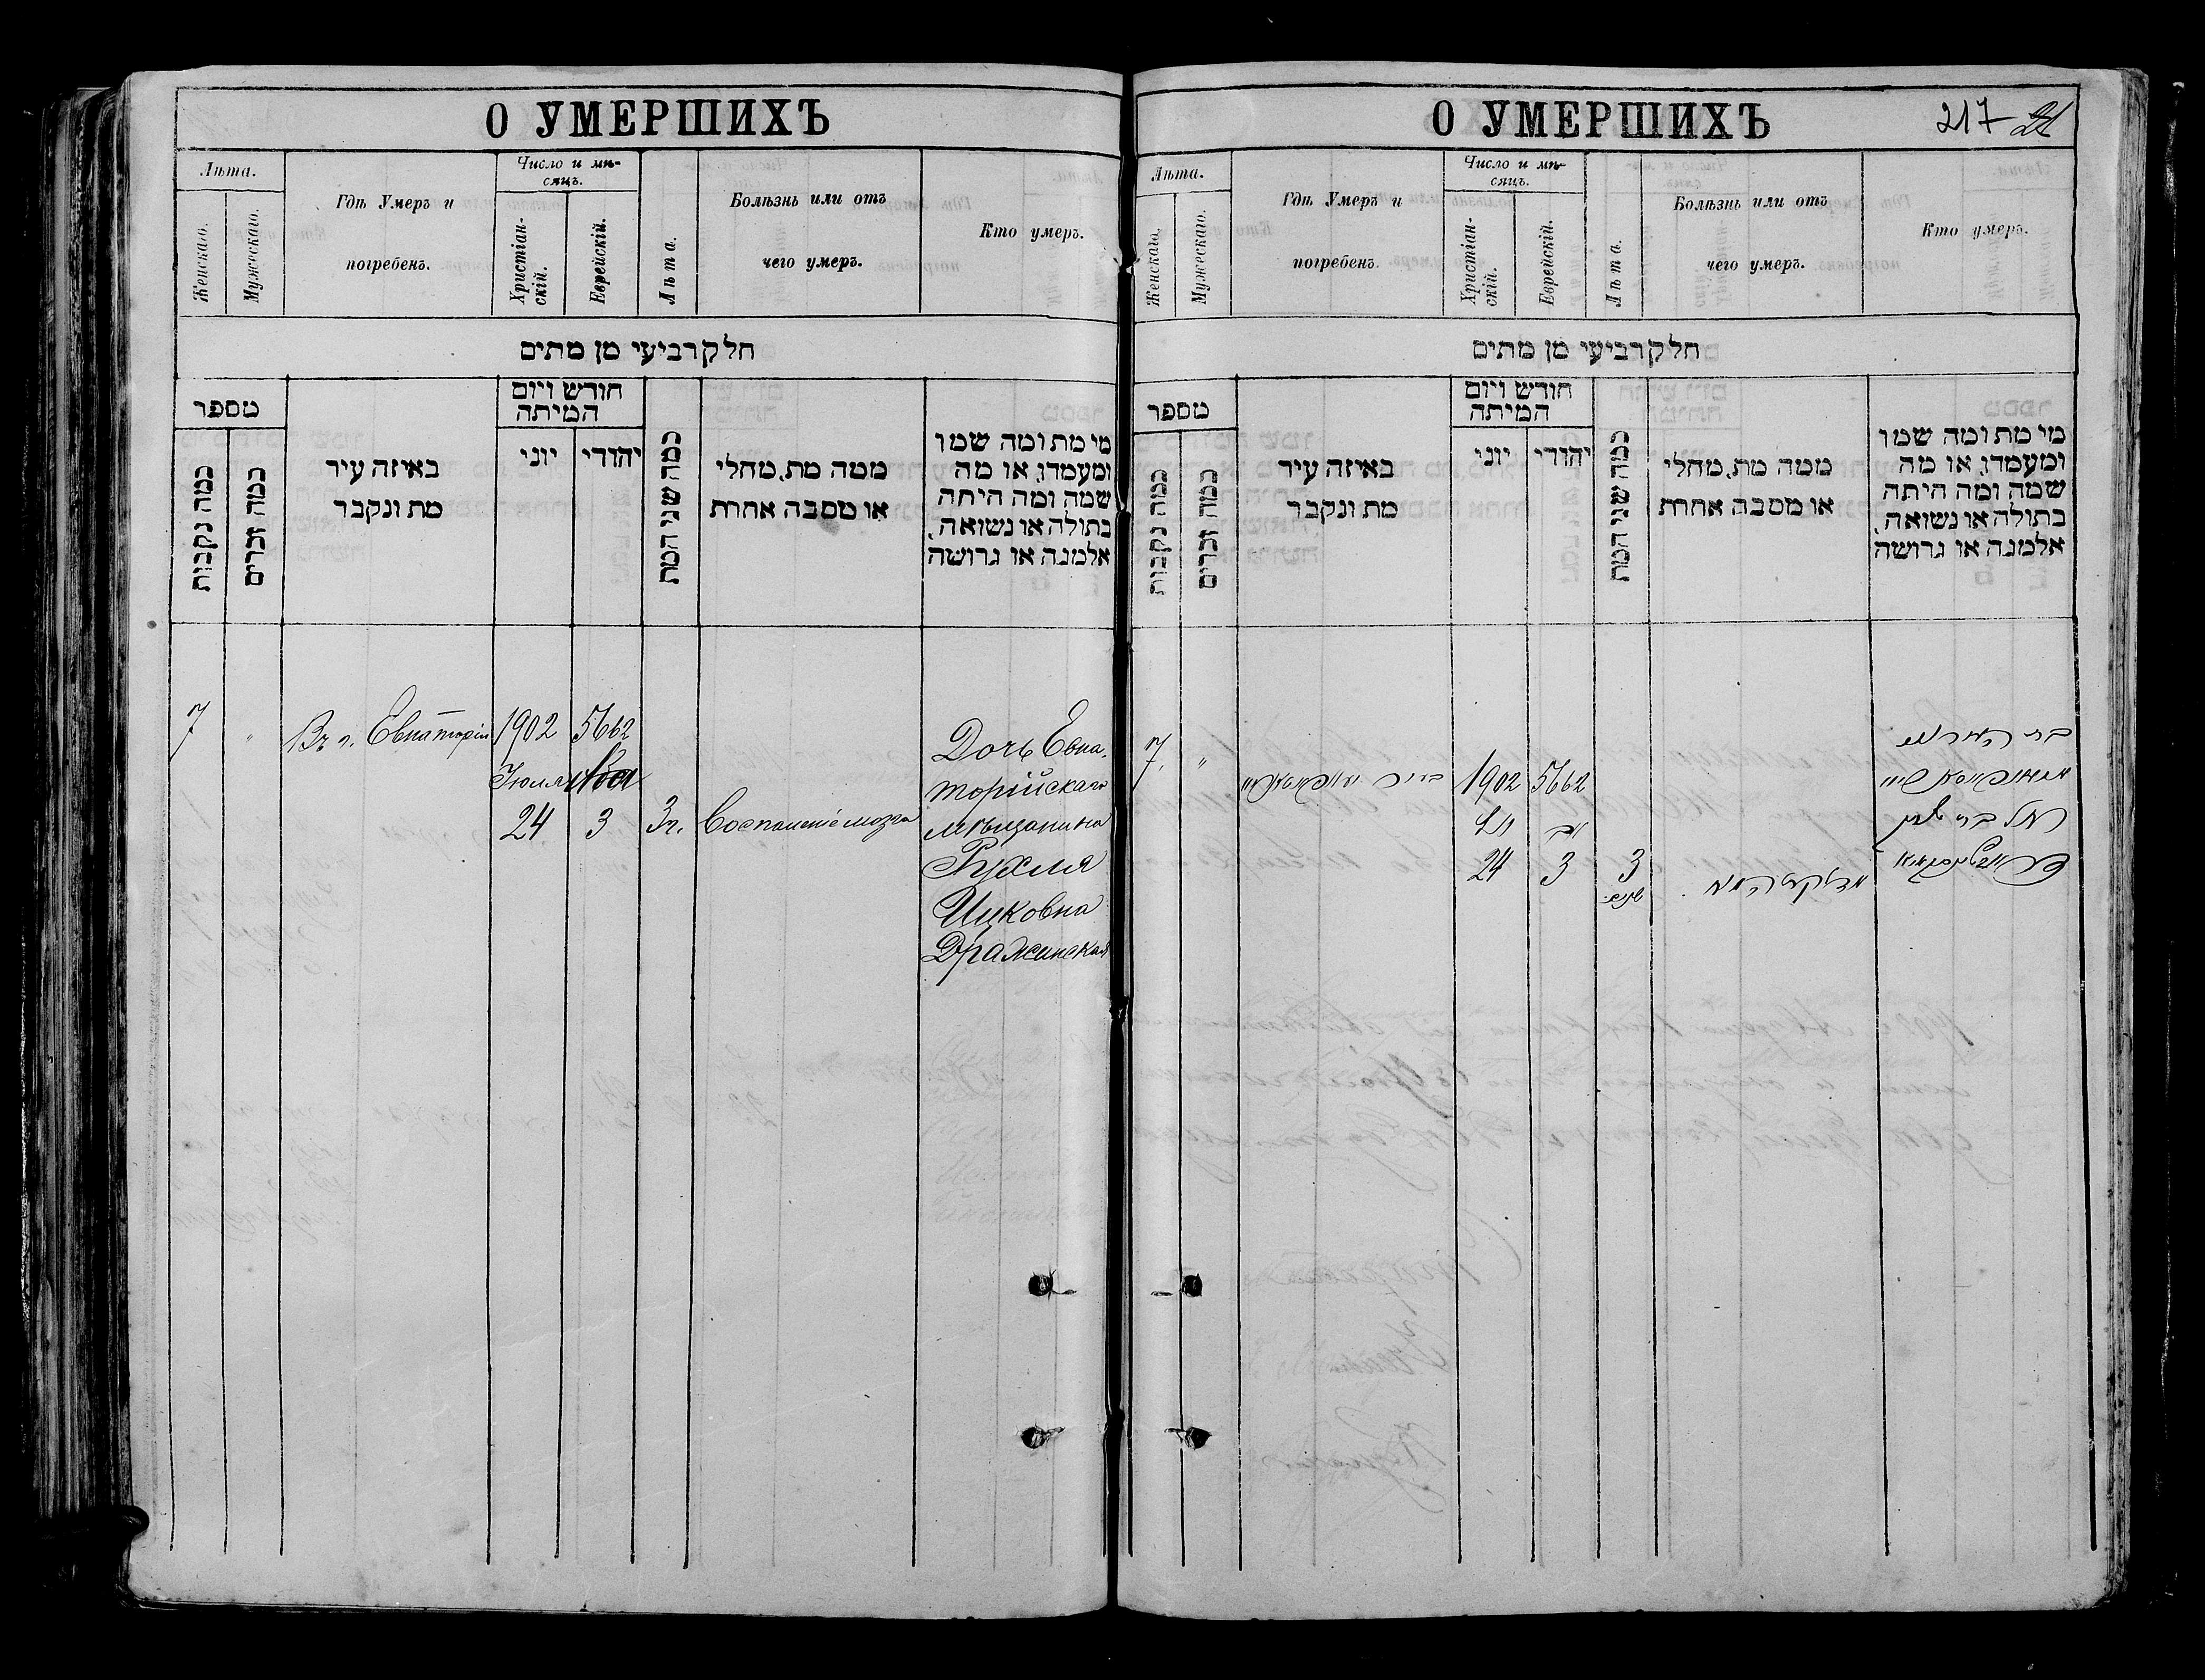 О УМЕРШИХЪ
Лѣта.
Женскаго.
Мужескаго.
Гдѣ Умеръ и
погребенъ.
Число и мѣ-
сяцъ.
Христіан-
скій.
Еврейскій.
Лѣта.
Болѣзнь или отъ
чего умеръ.
Кто умеръ.
חלק רביעי מן מתים
מספר
כמה נקבות
כמה זכרים
באיזה עיר
מת ונקבר
חודש ויום
המיתה
יוני
יהודי
כמה שני המת
ממה מת, מחלי
או מסבה אחרת
מי מת ומה שמו
ומעמדו, או מה
שמה ומה היתה
בתולה או נשואה,
אלמנה או גרושה
7
"
Въ г. Евпаторіи
1902
Іюля
24
5662
Ава
3
3 г.
Воспаленіе мозга
Дочь Евпа-
торійскаго
мѣщанина
Рухля
Ицковна
Дражинская
О УМЕРШИХЪ
217
21
Лѣта.
Женскаго.
Мужескаго.
Гдѣ Умеръ и
погребенъ.
Число и мѣ-
сяцъ.
Христіан-
скій.
Еврейскій.
Лѣта.
Болѣзнь или отъ
чего умеръ.
Кто умеръ.
חלק רביעי מן מתים
מספר
כמה נקבות
כמה זכרים
באיזה עיר
מת ונקבר
חודש ויום
המיתה
יוני
יהודי
כמה שני המת
ממה מת, מחלי
או מסבה אחרת
מי מת ומה שמו
ומעמדו, או מה
שמה ומה היתה
בתולה או נשואה,
אלמנה או גרושה
7.
"
1902
24
5662
אב
3
3
שנים